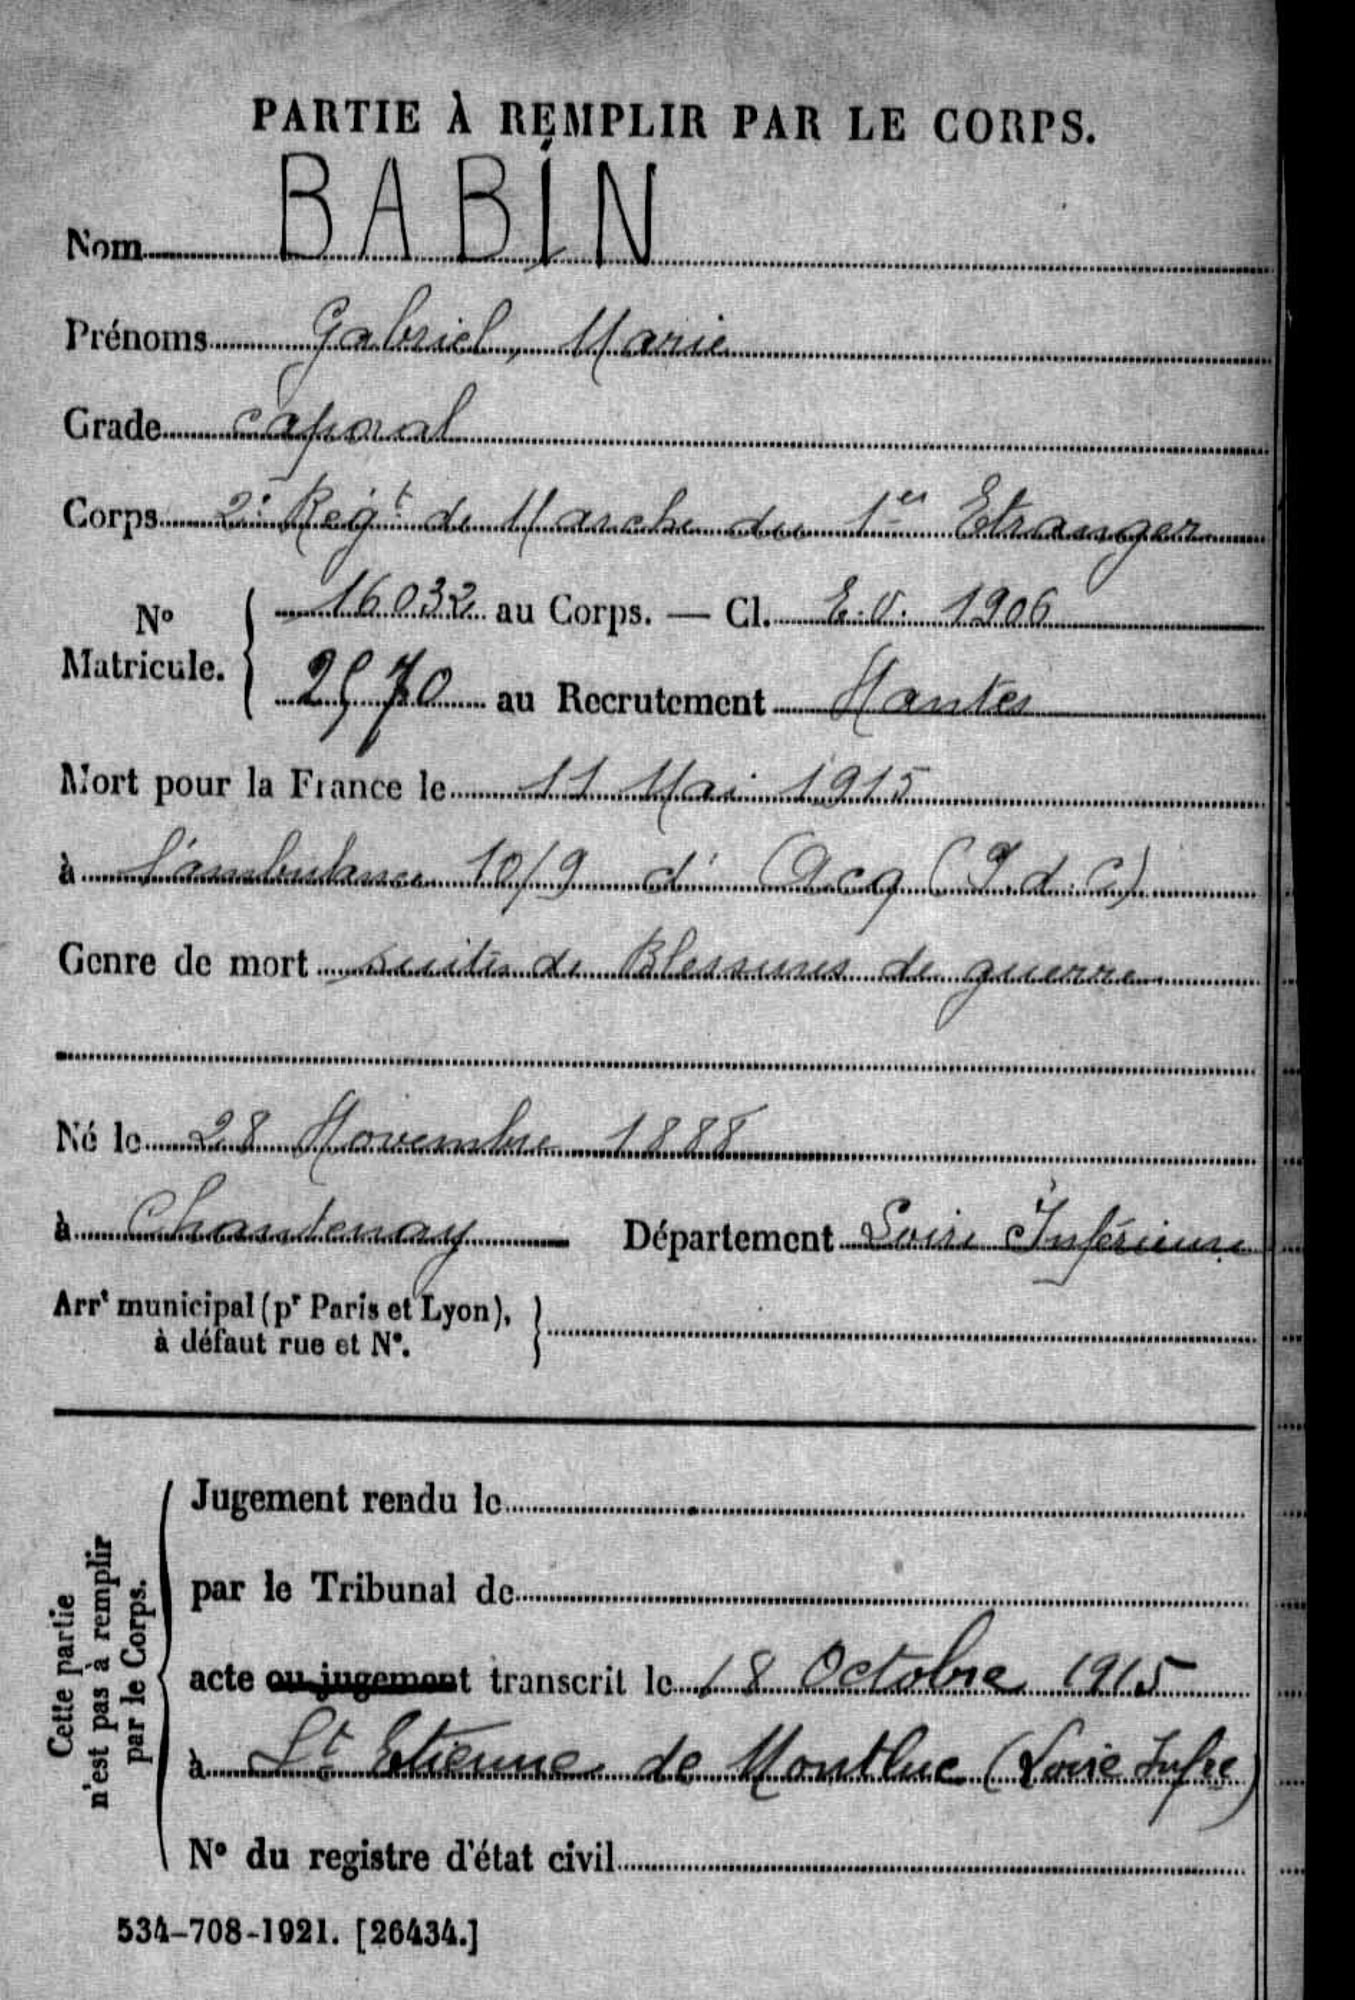 PARTIE À REMPLIR PAR LE CORPS.
Nom BABIN
Prénoms Gabriel, Marie
Grade caporal
Corps 2e Régt de Marche du 1er Etranger
No Matricule. 16032 au Corps. — Cl. E.V. 1906
2570 au Recrutement Nantes
Mort pour la France le 11 Mai 1915
à l'ambulance 10/9 d'Acq (P.d.C)
Genre de mort suites de Blessures de guerre
Né le 28 Novembre 1888
à Chantenay Département Loire Inférieure
Arrt municipal (pr Paris et Lyon),
à défaut rue et No.
Cette partie n'est pas à remplir par le Corps.
Jugement rendu le
par le Tribunal de
acte ou jugement transcrit le 18 Octobre 1915
à St Etienne de Montluc (Loire Infre)
No du registre d'état civil
534-708-1921. [26434.]